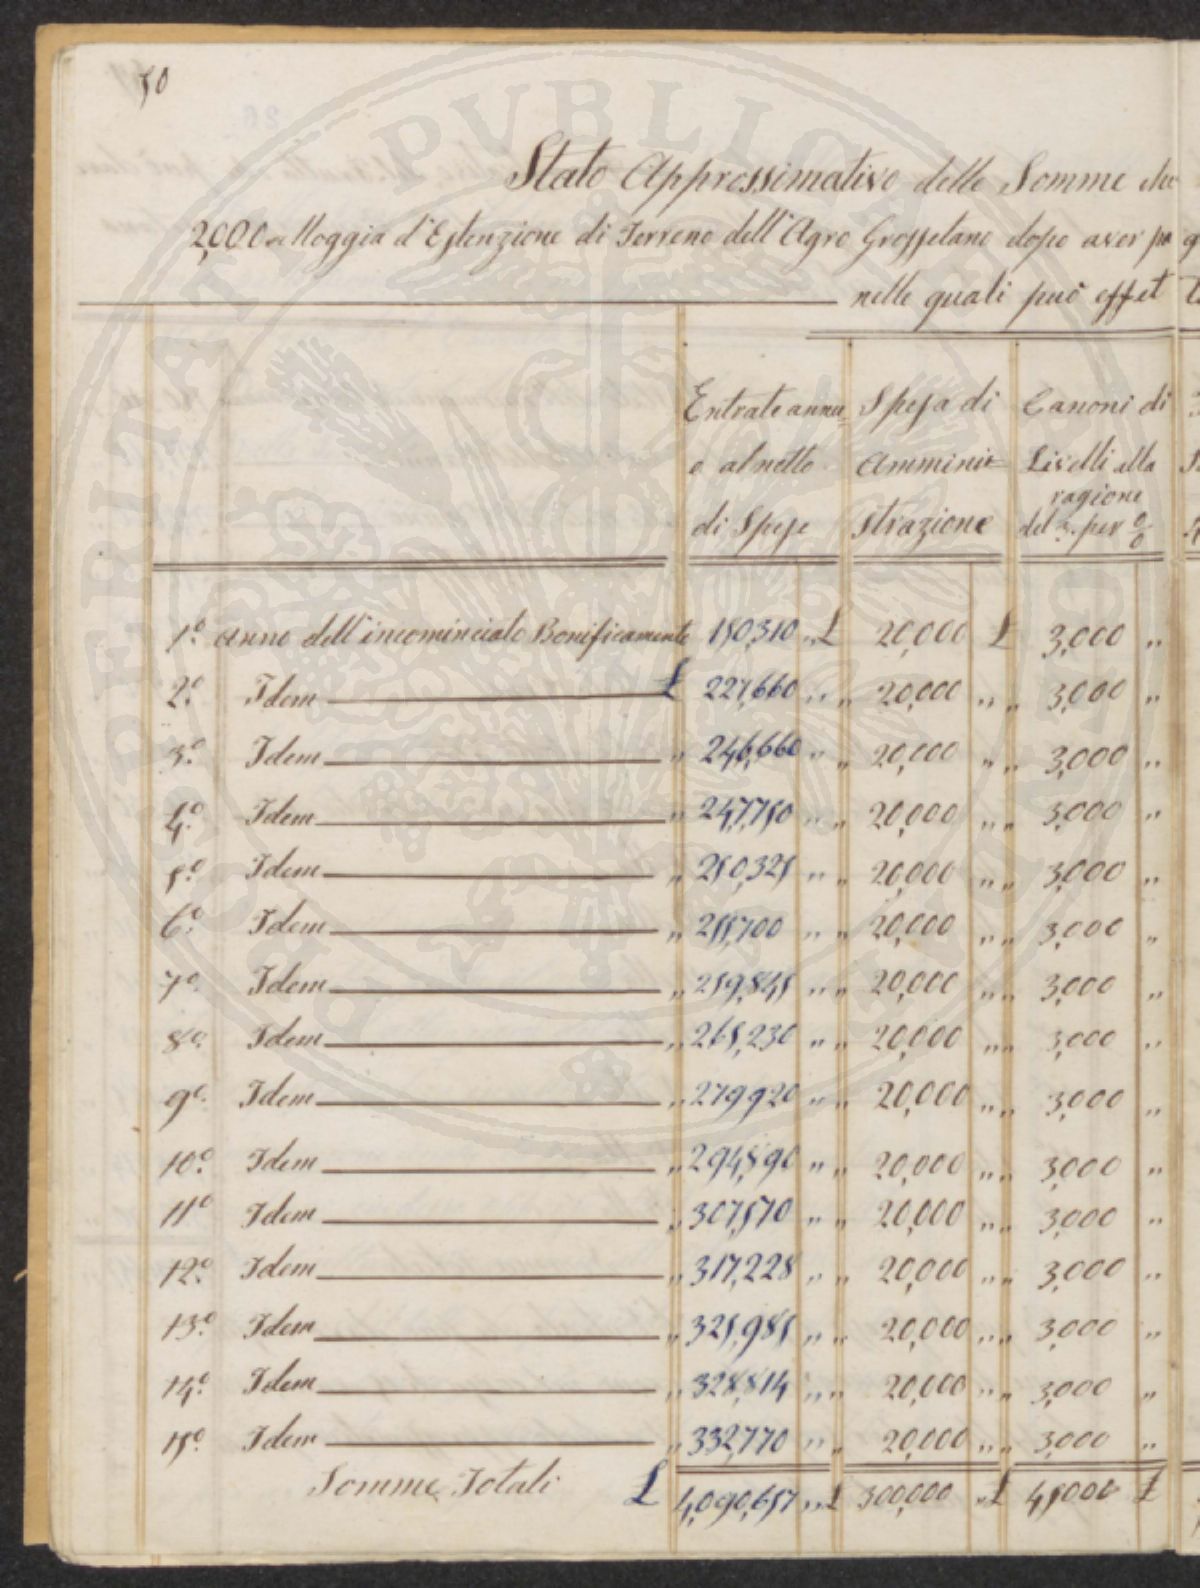 50
Stato Approssimativo delle Somme che
2,000 Moggia d'Estenzione di Terreno dell'Agro Grossetano dopo aver pa g
nelle quali può effet
Entrate annue Spesa di Canoni di
e al netto Amminis= Livelli alla
ragione
di Spese strazione del 3. per 0/0
1.º anno dell'incominciato Bonificamento 150,310 „ £ 20,000 £ 3,000 „
2.º Idem £ 227,660 „ „ 20,000 „ „ 3,000 „
3.º Idem „ 246,660 „ „ 20,000 „ „ 3,000 „
4.º Idem „ 247,750 „ „ 20,000 „ „ 3,000 „
5.º Idem „ 250,325 „ „ 20,000 „ „ 3,000 „
6.º Idem „ 255,700 „ „ 20,000 „ „ 3,000 „
7.º Idem „ 259,845 „ „ 20,000 „ „ 3,000 „
8.º Idem „ 265,230 „ „ 20,000 „ „ 3,000 „
9.º Idem „ 279920 „ „ 20,000 „ „ 3,000 „
10.º Idem „ 294,890 „ „ 20,000 „ „ 3,000 „
11.º Idem „ 307,570 „ „ 20,000 „ „ 3,000 „
12.º Idem „ 317,228 „ „ 20,000 „ „ 3,000 „
13.º Idem „ 325,985 „ „ 20,000 „ „ 3,000 „
14.º Idem „ 328,814 „ „ 20,000 „ „ 3,000 „
15.º Idem „ 332,770 „ „ 20,000 „ „ 3,000 „
Somme Totali £ 4,090,657 „ £ 300,000 „ £ 45000 £